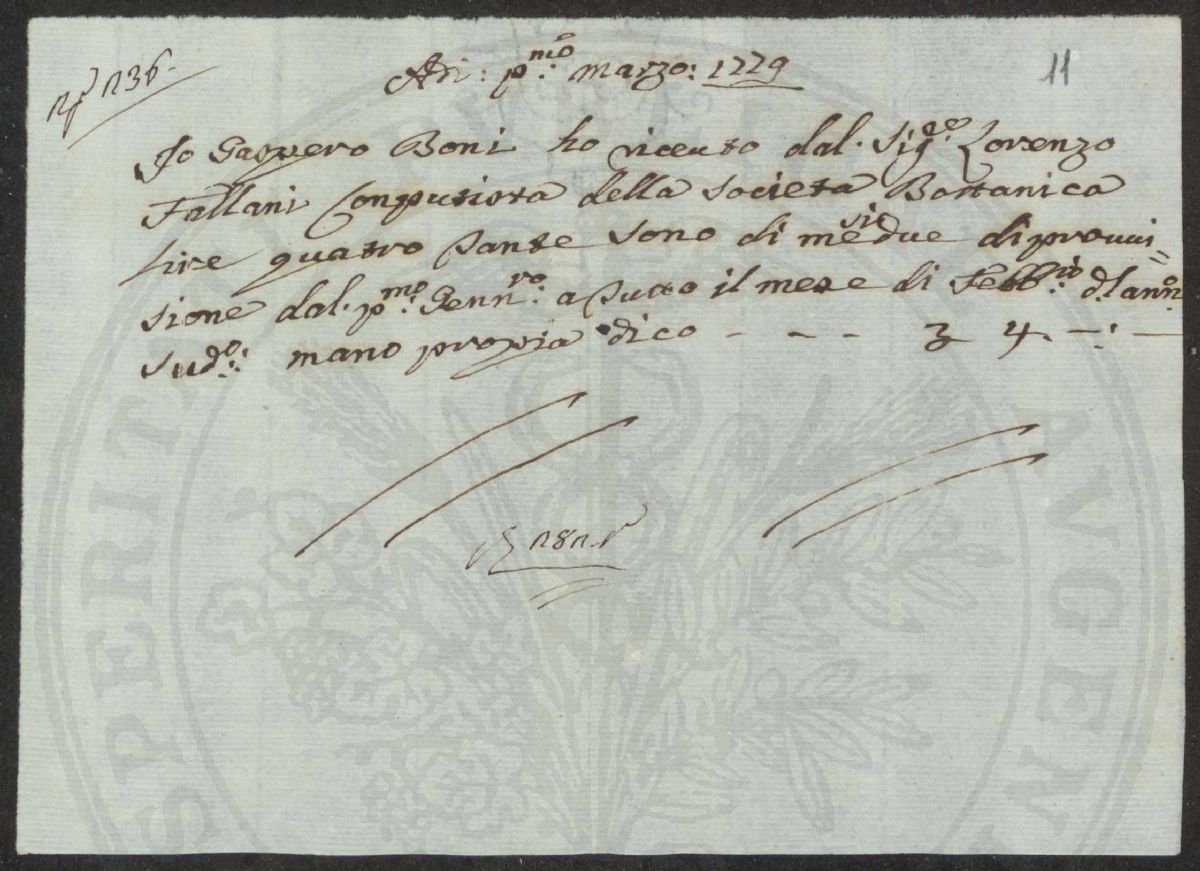 n° 236.
Adi: p.mo marzo: 1779
11
Io Gaspero Boni ho riceuto dal. Sig.re Lorenzo
Fallani Conputista della Societa Bottanica
lire quatro tante sono di mesi due di prouui=
sione dal. p.mo Genn.ro a tutto il mese di Febb.io d.l anno
sud.o: mano propia dico - - - - 3 4. -:-
PERITA
AVGEN